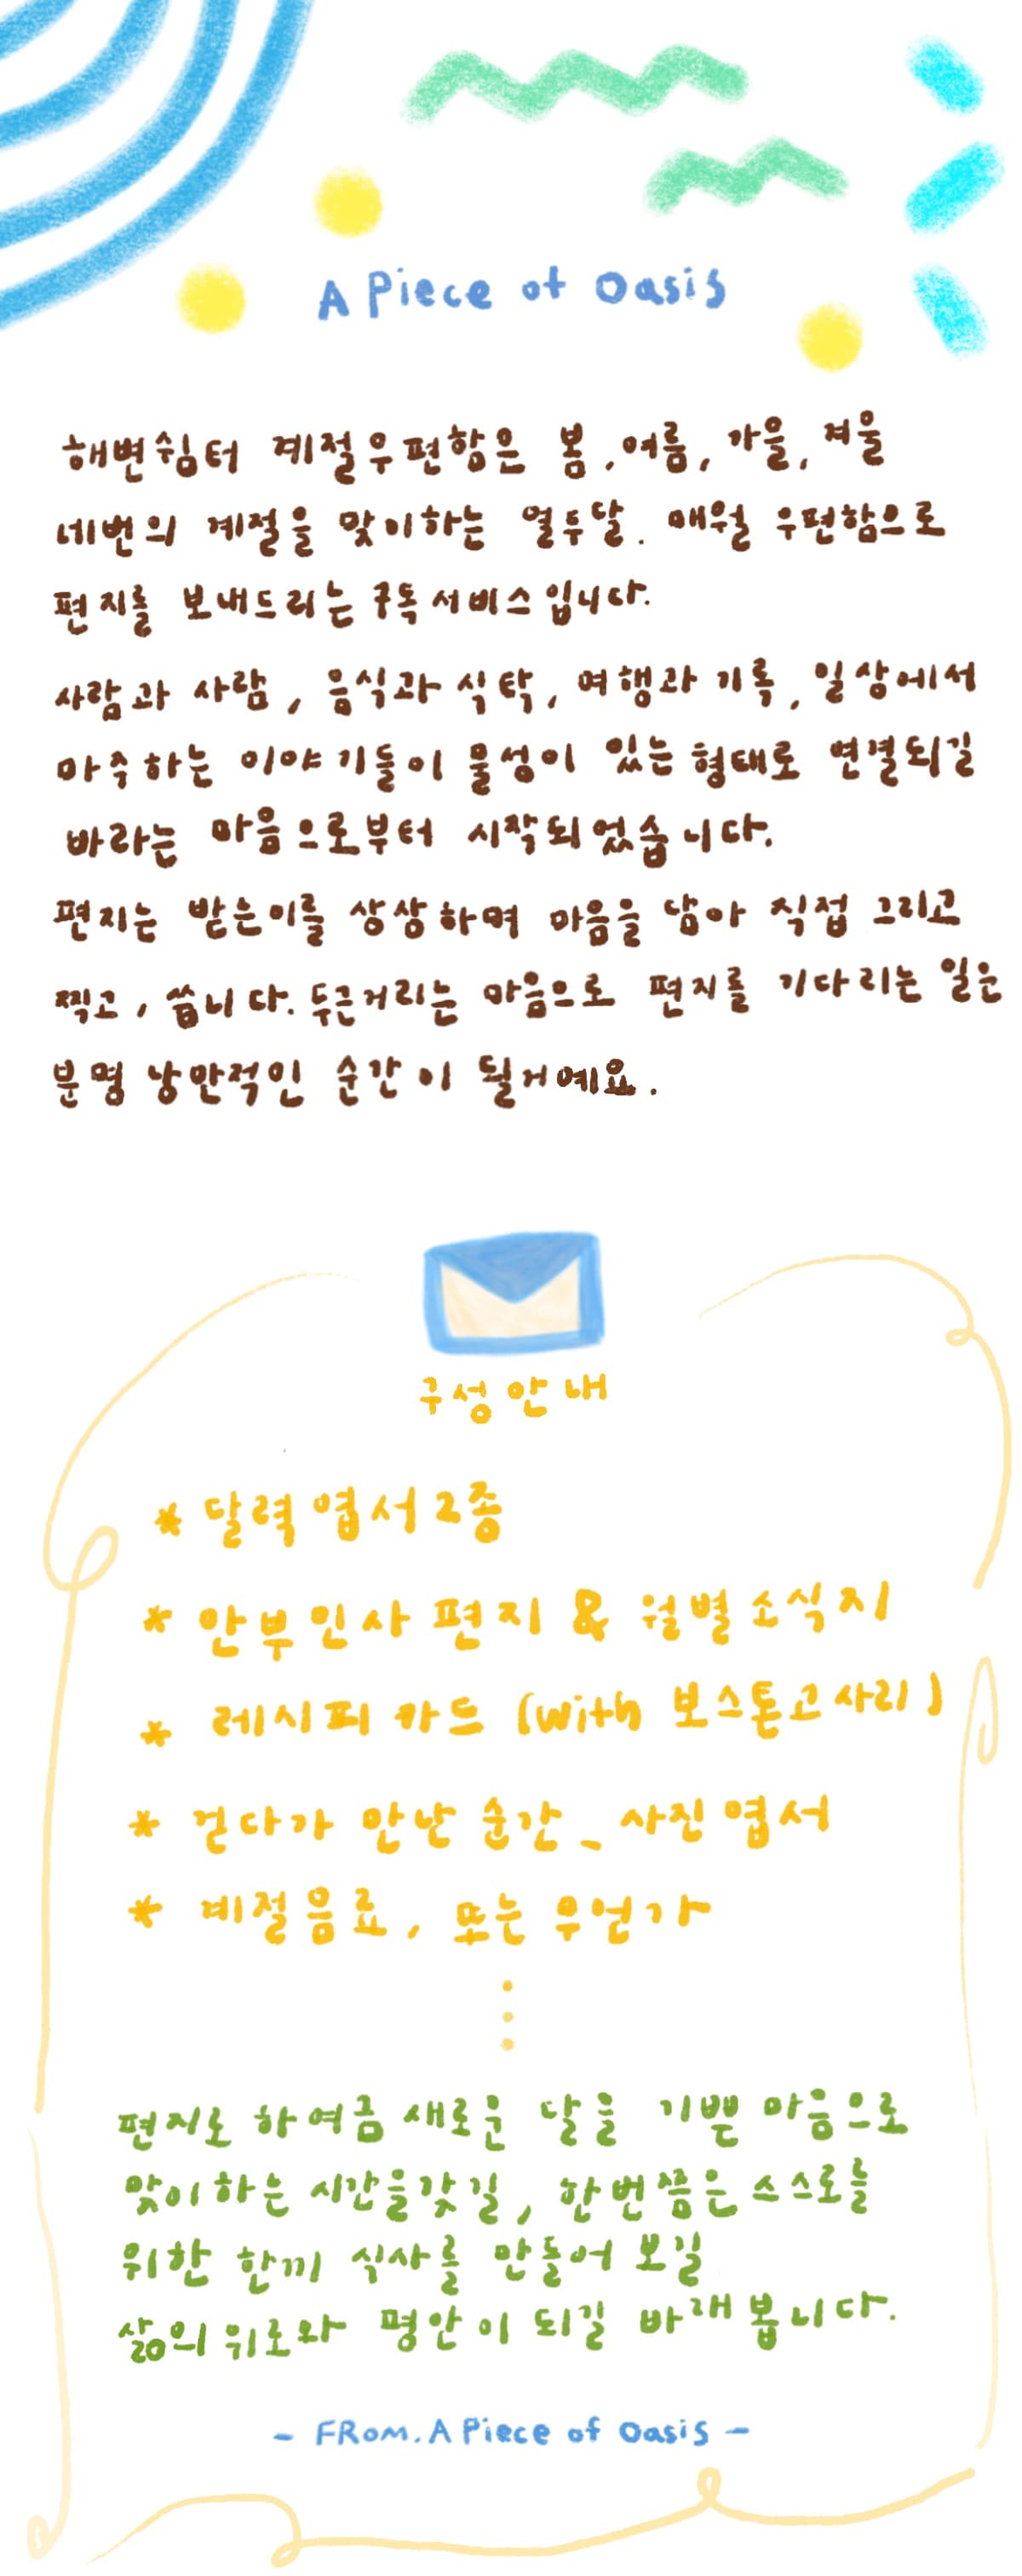 A Piece of Oasis
해변쉼터 계절우편함은 봄, 여름, 가을, 겨울
네번의 계절을 맞이하는 열두달. 매월 우편함으로
편지를 보내드리는 구독서비스입니다.
사람과 사람, 음식과 식탁, 여행과 기록, 일상에서
마주하는 이야기들이 물성이 있는 형태로 연결되길
바라는 마음으로부터 시작되었습니다.
편지는 받는이를 상상하며 마음을 담아 직접 그리고
찍고, 씁니다. 두근거리는 마음으로 편지를 기다리는 일은
분명 낭만적인 순간이 될거예요.
구성안내
* 달력엽서 2종
* 안부인사 편지 & 월별소식지
* 레시피 카드 (with 보스톤고사리)
* 걷다가 만난 순간_사진엽서
* 계절음료, 또는 무언가
편지로 하여금 새로운 달을 기쁜 마음으로
맞이하는 시간을갖길, 한번쯤은 스스로를
위한 한끼 식사를 만들어 보길
삶의 위로와 평안이 되길 바래봅니다.
- FROM. A Piece of Oasis -